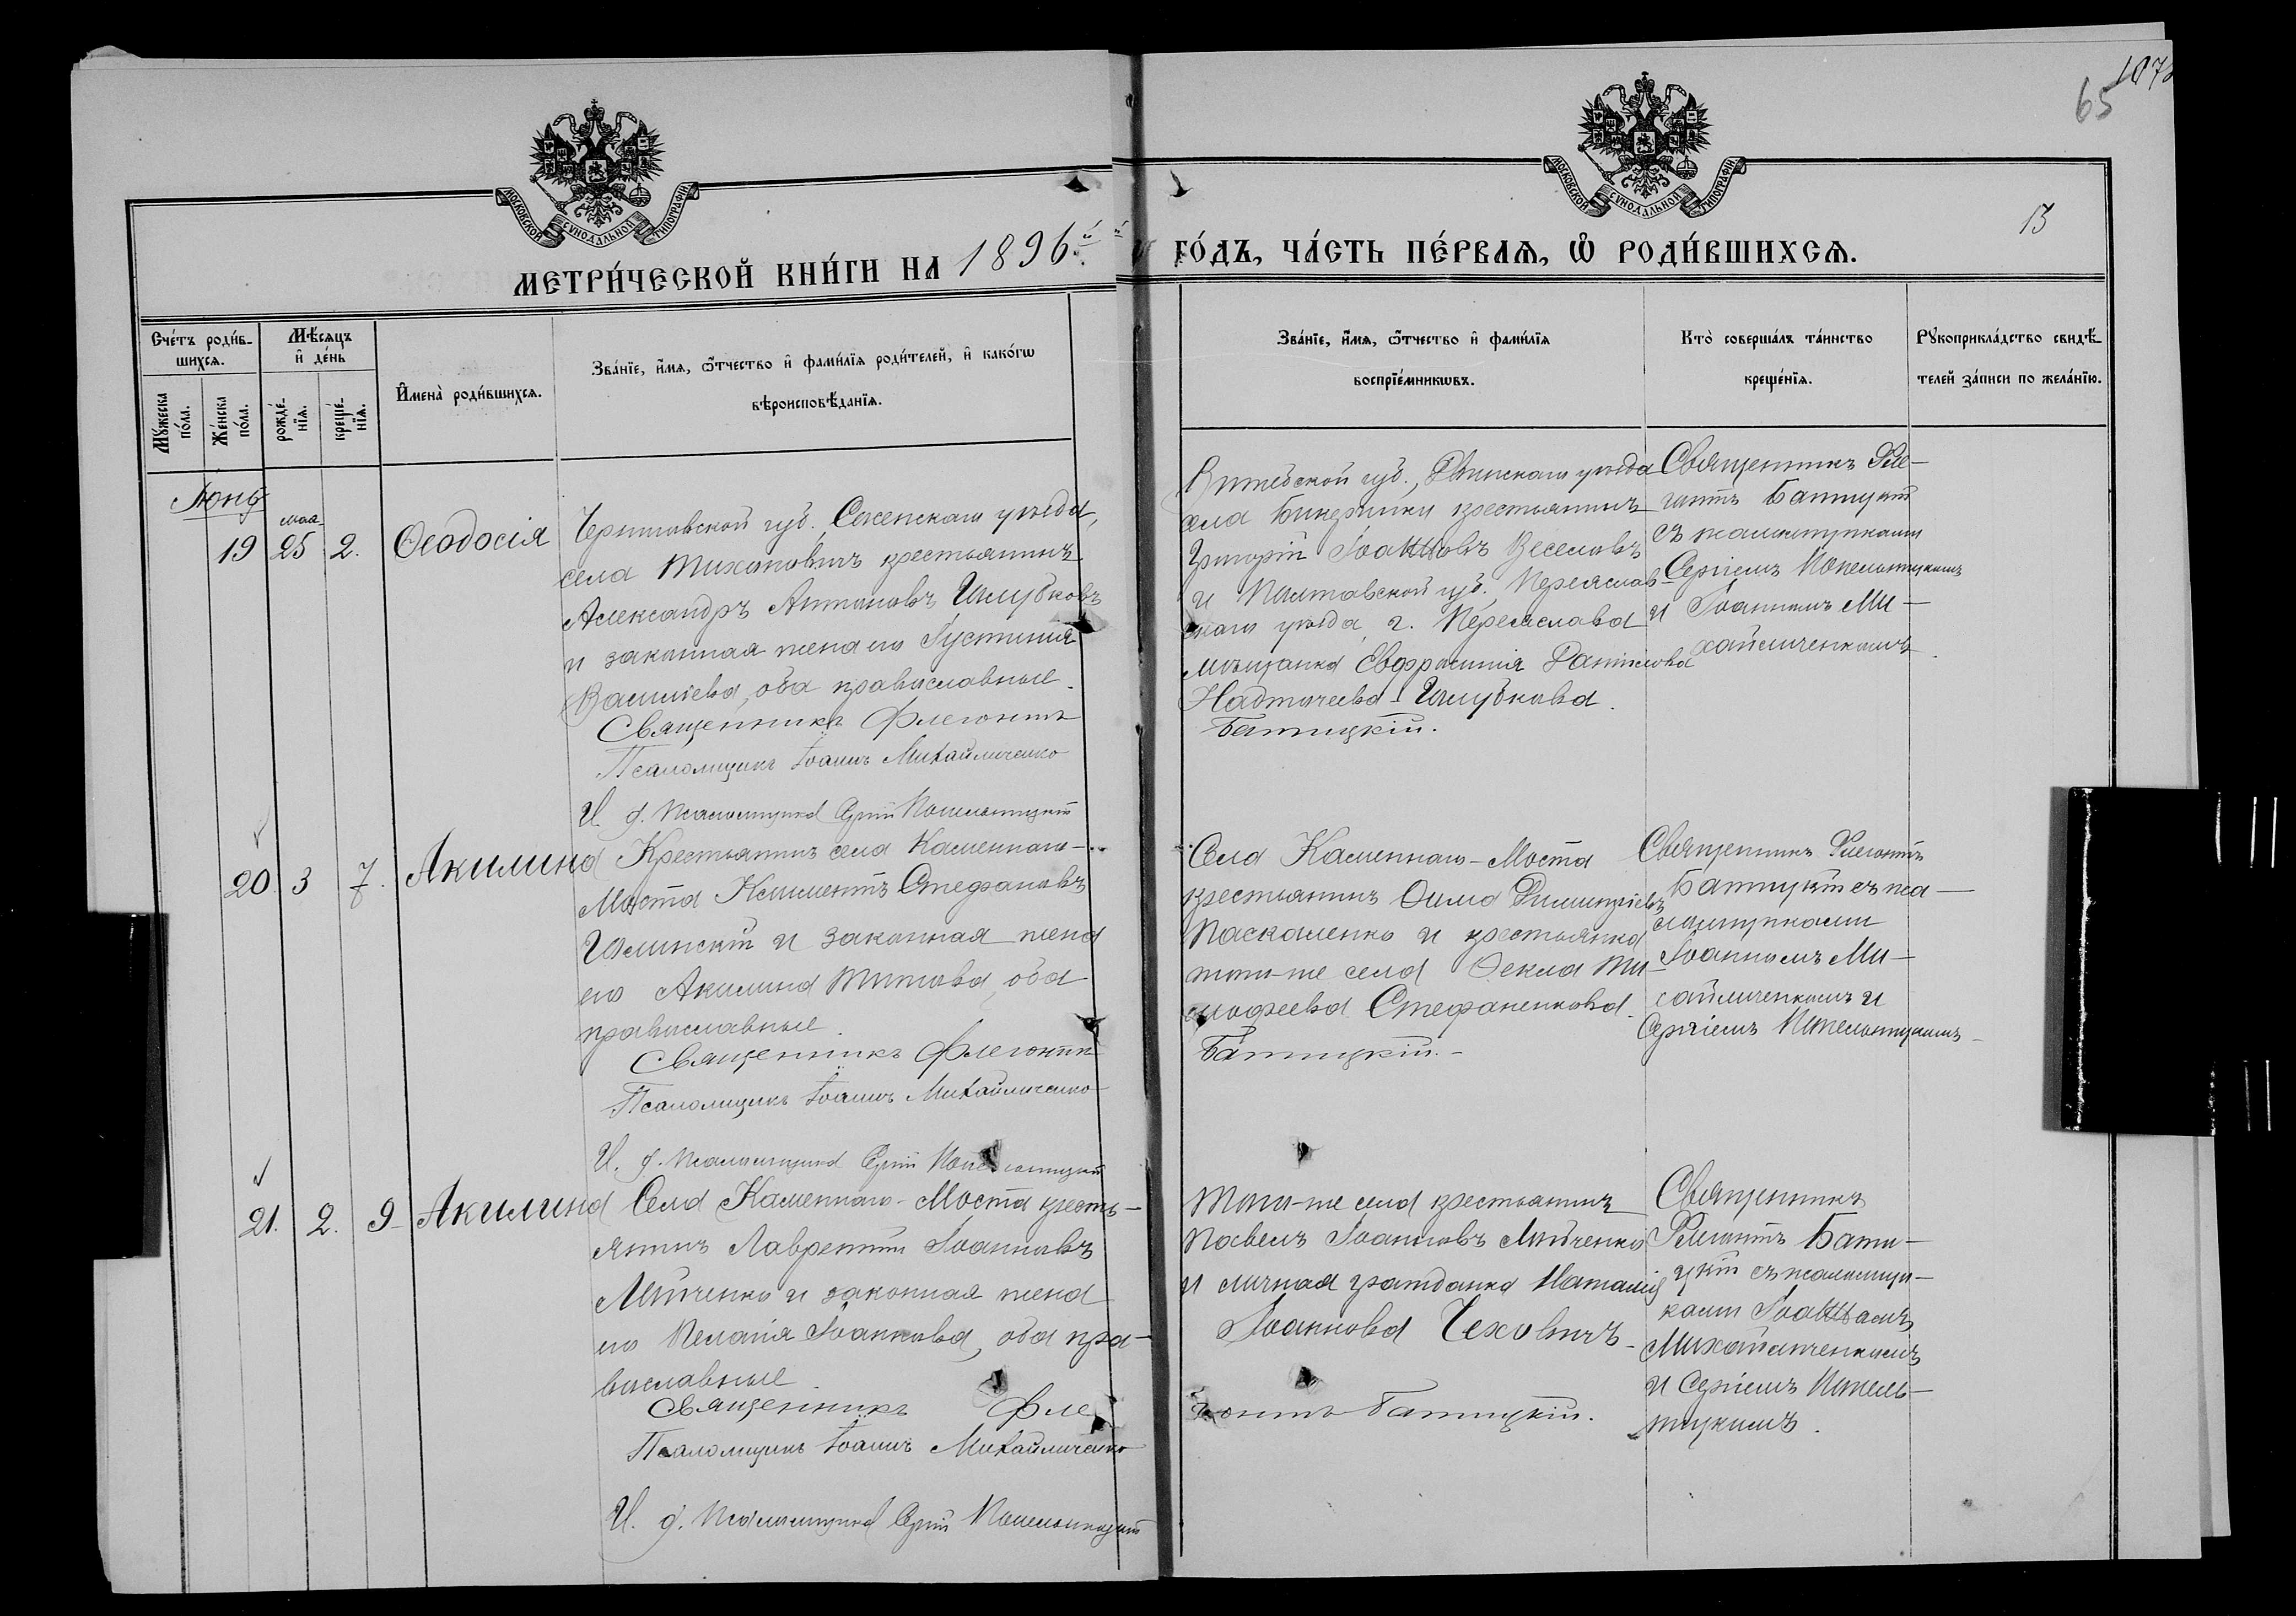 1072
65
13
МОСКОВСКОЙ СУНОДАЛЬНОЙ ТИПОГРАФІИ
МОСКОВСКОЙ СУНОДАЛЬНОЙ ТИПОГРАФІИ
МЕТРИ́ЧЕСКОЙ КНИ́ГИ НА 1896й
ГО́ДЪ, ЧА́СТЬ ПЕ́РВАѦ, Ѡ РОДИ́ВШИХСѦ.
Сче́тъ роди́в-
шихсѧ.
Мꙋ́жеска по́ла.
Же́нска по́ла.
Мѣ́сѧцъ и де́нь
рожде́-нїѧ.
креще́-нїѧ.
Имена̀ роди́вшихсѧ.
Зва́нїе, и́мѧ, ѻ́тчество и фами́лїѧ роди́телей, и како́гѡ
вѣроисповѣ́данїѧ.
Зва́нїе, и́мѧ, ѻ́тчество и фами́лїѧ
воспрїе́мникѡвъ.
Кто̀ соверша́лъ та́инство
креще́нїѧ.
Рꙋкоприкла́дство свидѣ́-
телей за́писи по жела́нїю.
Іюнь
мая
19 25 2. Ѳеодосія
Черниговской губ. Сосенскаго уѣзда,
села Тихановичъ крестьянинъ
Александръ Антоновъ Голубковъ
и законная жена его Іустинія
Василіева, оба православные.
Священникъ Флегонтъ
Псаломщикъ Іоаннъ Михайличенко
И. д. псаломщика Сергій Попельницкій
Витебской губ., Двинскаго уѣзда
села Бикерники крестьянинъ
Григорій Іоанновъ Веселовъ
и Полтавской губ. Переяслав-
скаго уѣзда г. Переяслава
мѣщанка Евфросинія Даніилова
Надточеева-Голубкова.
Батицкій.
Священникъ Фле-
гонтъ Батицкій
съ псаломщиками
Сергіемъ Попельницкимъ
и Іоанномъ Ми-
хайличенкомъ.
20 3 7. Акилина
Крестьянинъ села Каменнаго-
Моста Климентъ Стефановъ
Голинскій и законная жена
его Акилина Титова, оба
православные.
Священникъ Флегонтъ
Псаломщикъ Іоаннъ Михайличенко
И. д. псаломщика Сергій Попельницкій
Села Каменнаго-Моста
крестьянинъ Ѳома Димитріевъ
Паскаленко и крестьянка
того-же села Ѳекла Ти-
мофеева Стефаненкова.
Батицкій.
Священникъ Флегонтъ
Батицкій съ пса-
ломщиками
Іоанномъ Ми-
хайличенкомъ и
Сергіемъ Попельницкимъ
21. 2. 9 Акилина
Села Каменнаго-Моста кресть-
янинъ Лаврентій Іоанновъ
Мойченко и законная жена
его Пелагія Іоаннова, оба пра-
вославные.
Священникъ Фле-
Псаломщикъ Іоаннъ Михайличенко
И. д. псаломщика Сергій Попельницкій
Того-же села крестьянинъ
Павелъ Іоанновъ Мойченко
и личная гражданка Наталія
Іоаннова Чеховичъ.
гонтъ Батицкій.
Священникъ
Флегонтъ Бати-
цкій съ псаломщи-
ками Іоанномъ
Михайличенкомъ
и Сергіемъ Попель-
ницкимъ.